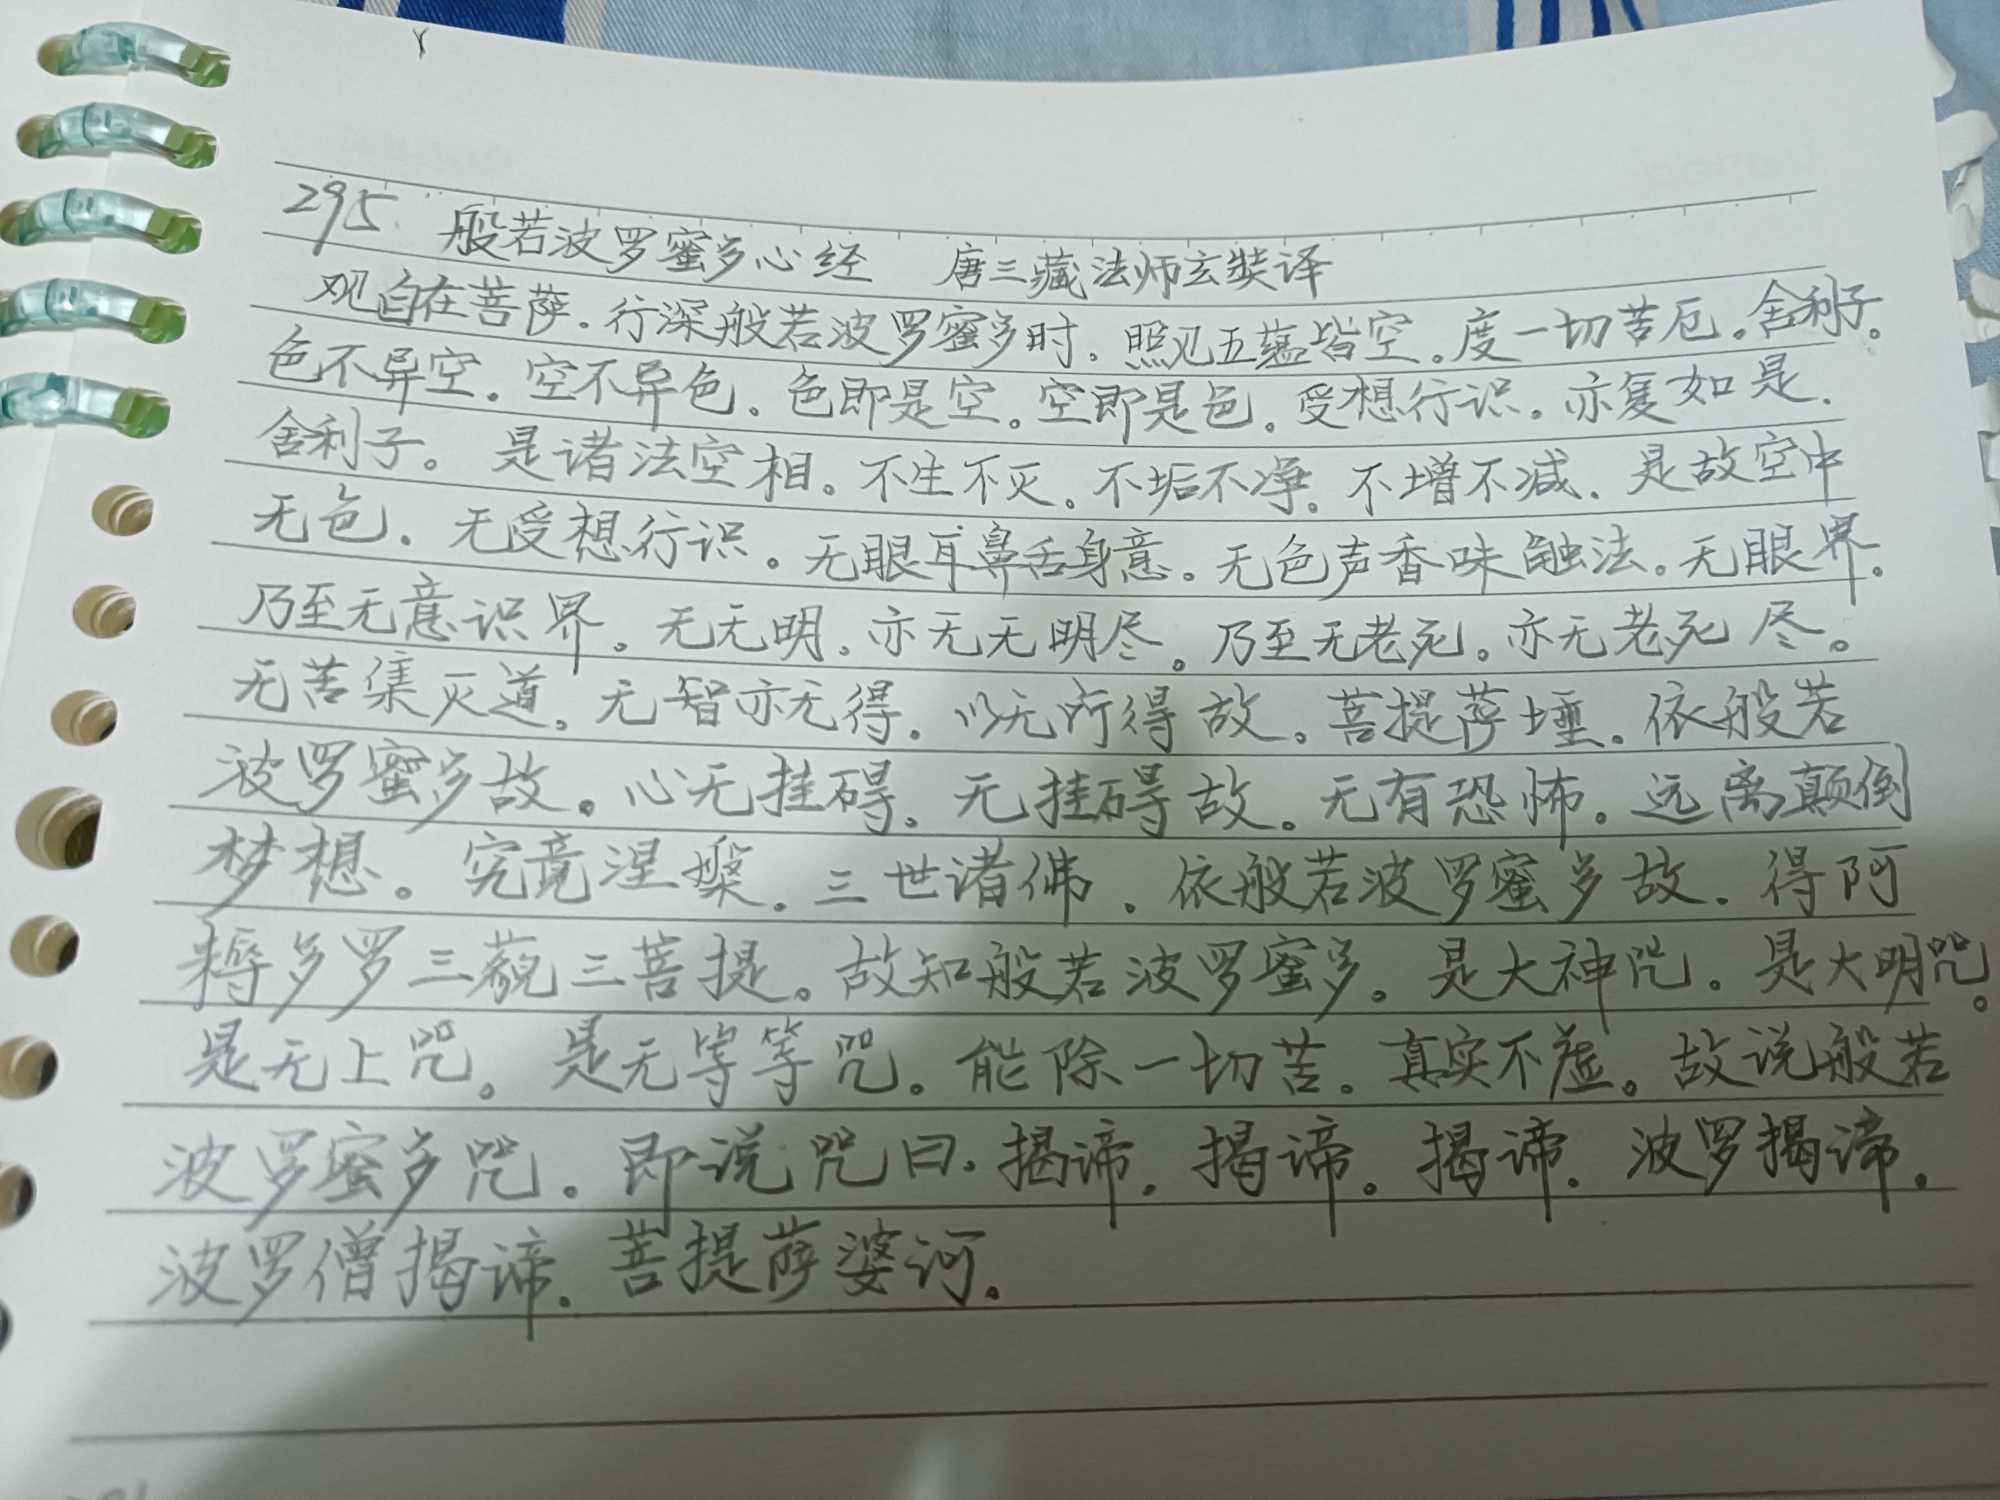 295. 般若波罗蜜多心经 唐三藏法师玄奘译
观自在菩萨.行深般若波罗蜜多时.照见五蕴皆空。度一切苦厄。舍利子。
色不异空。空不异色。色即是空。空即是色。受想行识。亦复如是.
舍利子。是诸法空相。不生不灭。不垢不净。不增不减.是故空中
无色.无受想行识。无眼耳鼻舌身意。无色声香味触法。无眼界。
乃至无意识界。无无明.亦无无明尽。乃至无老死。亦无老死尽。
无苦集灭道。无智亦无得.以无所得故。菩提萨埵。依般若
波罗蜜多故。心无挂碍。无挂碍故。无有恐怖。远离颠倒
梦想。究竟涅槃.三世诸佛.依般若波罗蜜多故.得阿
耨多罗三藐三菩提。故知般若波罗蜜多。是大神咒.是大明咒。
是无上咒。是无等等咒。能除一切苦。真实不虚。故说般若
波罗蜜多咒。即说咒曰.揭谛.揭谛。揭谛.波罗揭谛.
波罗僧揭谛.菩提萨婆诃。